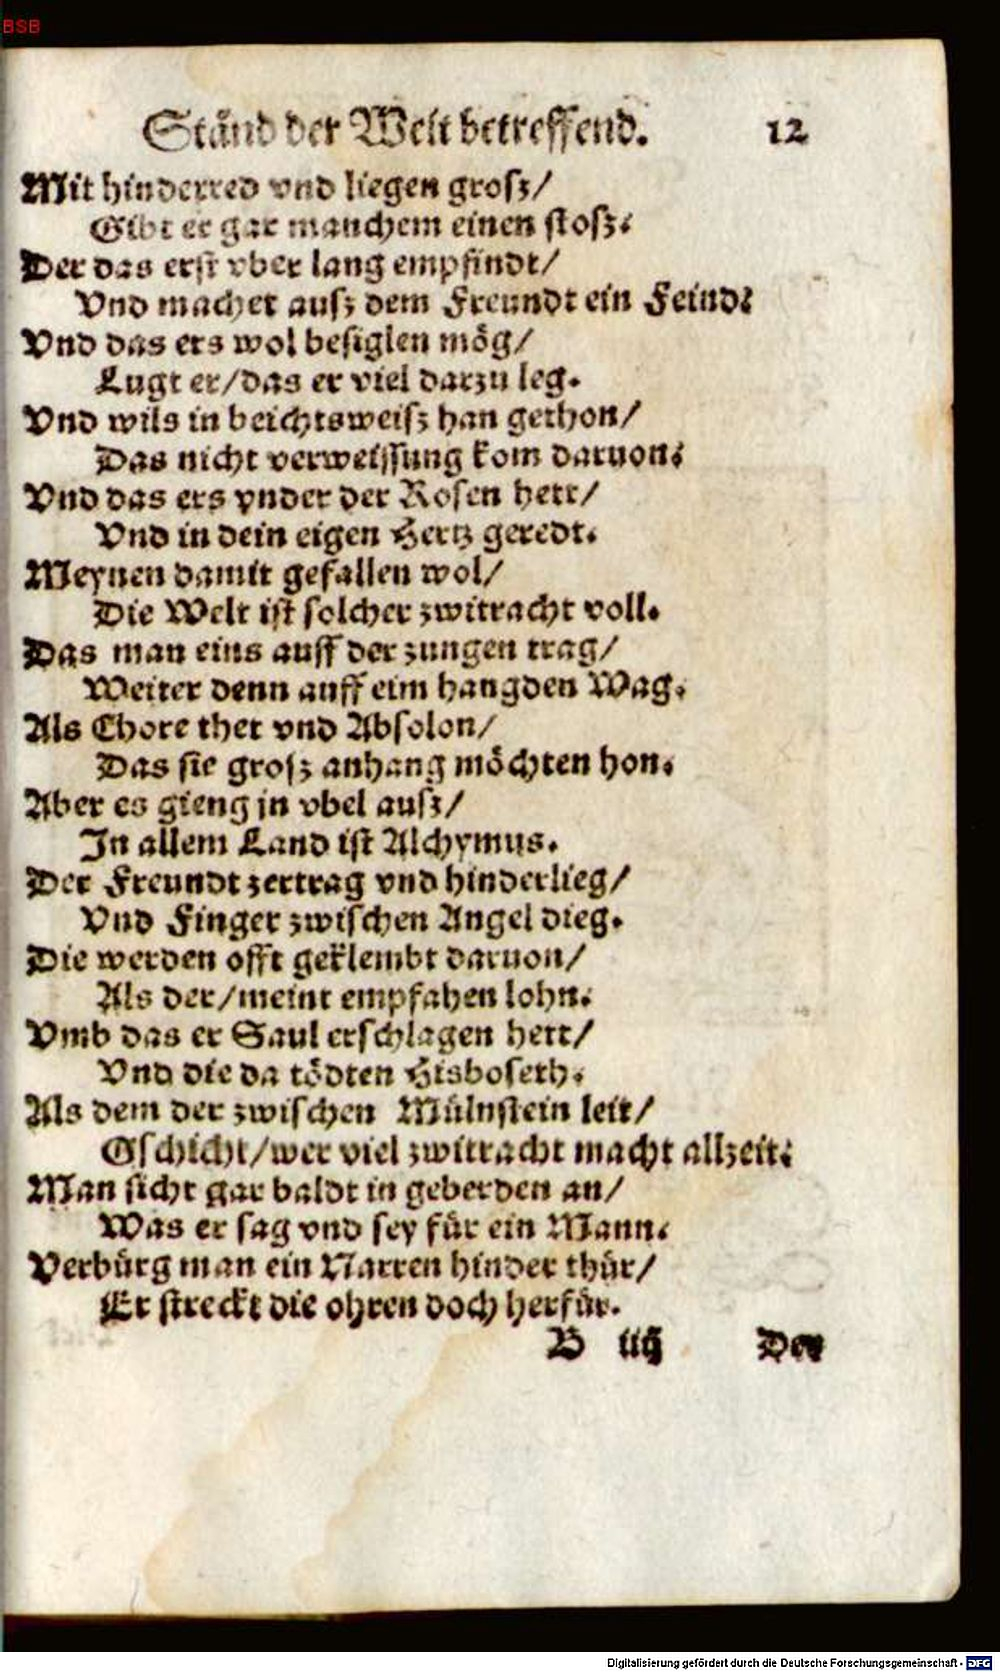 BSB
Ständ der Welt betreffend. 12
Mit hinderred vnd liegen grosz/
Gibt er gar manchem einen stosz.
Der das erst vber lang empfindt/
Vnd machet ausz dem Freundt ein Feind.
Vnd das ers wol besiglen mög/
Lugt er/das er viel darzu leg.
Vnd wils in beichtsweisz han gethon/
Das nicht verweissung kom daruon.
Vnd das ers vnder der Rosen hett/
Vnd in dein eigen Hertz geredt.
Meynen damit gefallen wol/
Die Welt ist solcher zwitracht voll.
Das man eins auff der zungen trag/
Weiter denn auff eim hangden Wag.
Als Chore thet vnd Absolon/
Das sie grosz anhang möchten hon.
Aber es gieng jn vbel ausz/
In allem Land ist Alchymus.
Der Freundt zertrag vnd hinderlieg/
Vnd Finger zwischen Angel dieg.
Die werden offt geklembt daruon/
Als der/meint empfahen lohn.
Vmb das er Saul erschlagen hett/
Vnd die da tödten Hisboseth.
Als dem der zwischen Mülnstein leit/
Gschicht/wer viel zwitracht macht allzeit.
Man sicht gar baldt in geberden an/
Was er sag vnd sey für ein Mann.
Verbürg man ein Narren hinder thür/
Er streckt die ohren doch herfür.
B iiij Der
Digitalisierung gefördert durch die Deutsche Forschungsgemeinschaft - DFG